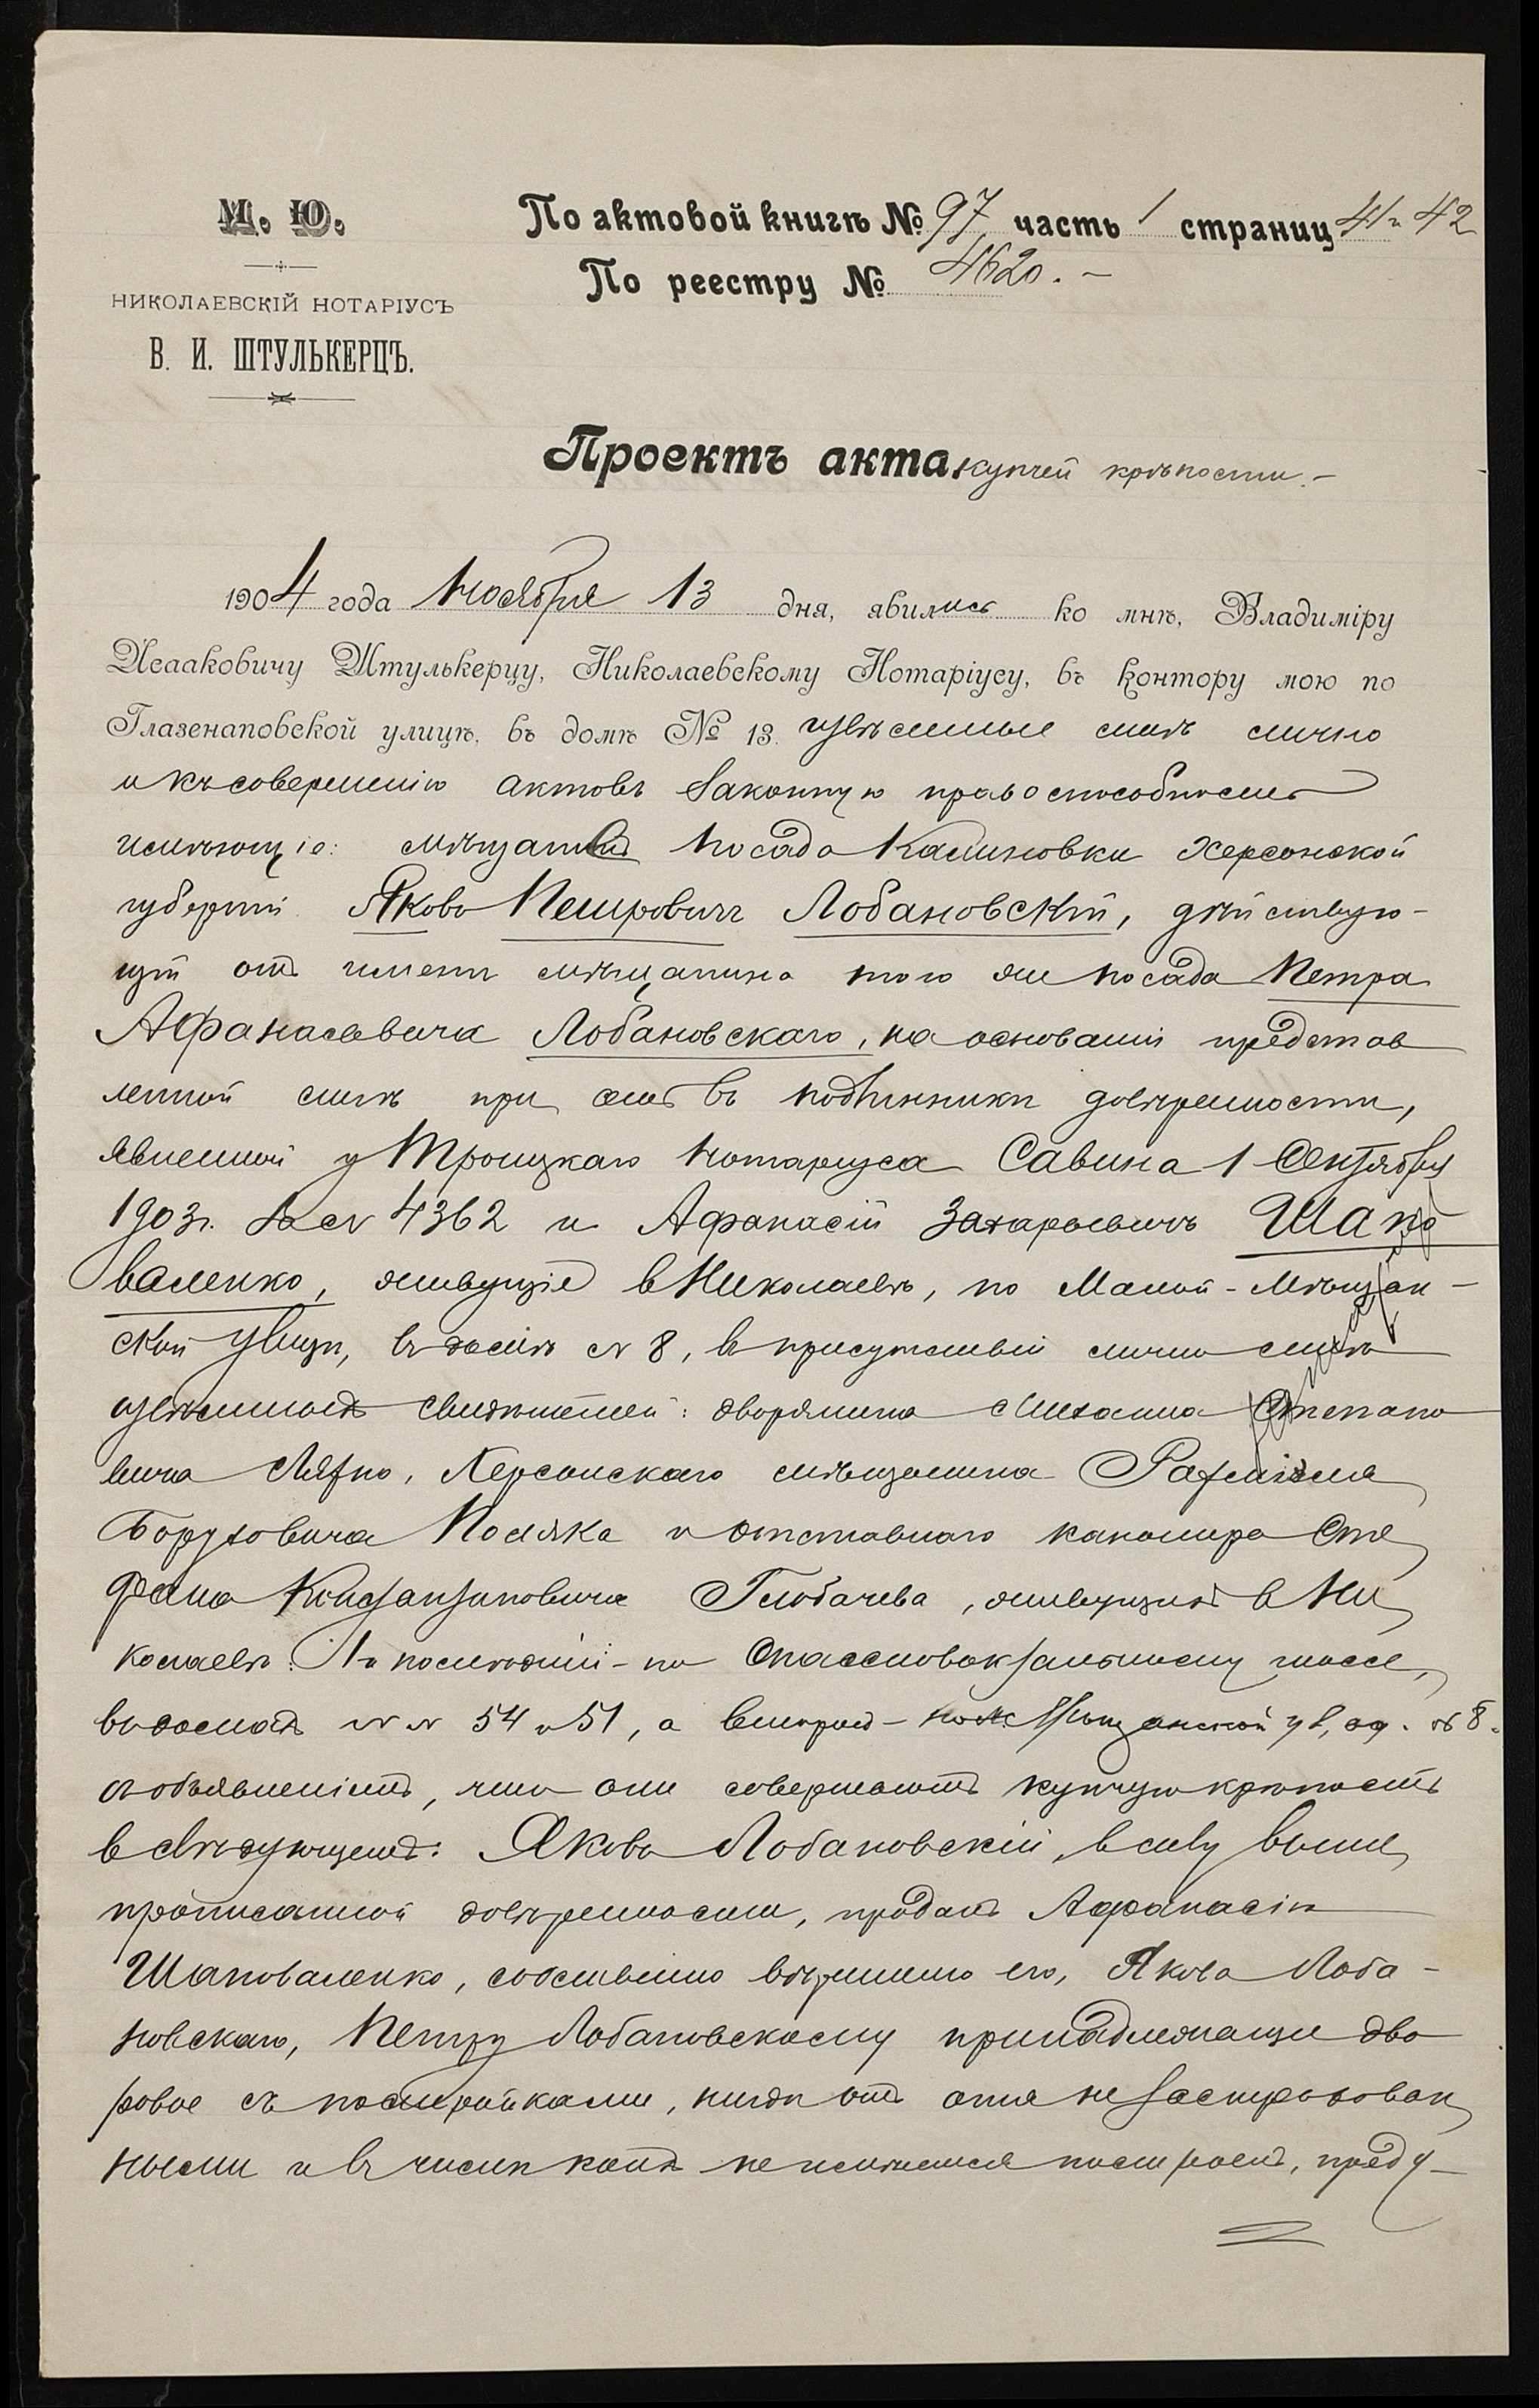 М. Ю.
НИКОЛАЕВСКІЙ НОТАРІУСЪ
В. И. ШТУЛЬКЕРЦЪ.
По актовой книгѣ № 97 часть 1 страниц 41 и 42
По реестру № 4620. –
Проектъ акта купчей крѣпости. –
1904 года Ноября 13 дня, явились ко мнѣ, Владиміру
Исааковичу Штулькерцу, Николаевскому Нотаріусу, въ контору мою по
Глазенаповской улицѣ, въ домѣ № 13. извѣстные мнѣ лично
и къ совершенію актовъ законную правоспособность
имѣющіе: мѣщанинъ посада Калиновки Херсонской
губерніи Яковъ Петровичъ Лобановскій, дѣйствую-
щій отъ имени мѣщанина того же посада Петра
Афанасьевича Лобановскаго, на основаніи представ
ленной мнѣ при семъ въ подлинникѣ довѣренности,
явленной у Троицкаго нотаріуса Савина 1 Сентября
1903г. за № 4362 и Афанасій Захарьевичъ Шапо
валенко, живущіе в Николаевѣ, по Малой-Мѣщан-
ской улицѣ, въ домѣ № 8, в присутствіи лично мнѣ
извѣстныхъ свидѣтелей: дворянина Михаила Степано
вича Херсонскаго мѣщанина Рахміеля
Боруховича Поляка и отставного канонира Сте
фана Константиновича Глобачева, живущихъ в Ни
колаевѣ: 1й и послѣдній - по Спассковокзальному шоссе,
въ домахъ №№ 54 и 51, а второй - по М. Мѣщанской ул, № 8.
съ объявленіемъ, что они совершаютъ купчую крѣпость
в слѣдующемъ: Яковъ Лобановскій, в силу выше
прописанной довѣренности, продалъ Афанасію
Шаповаленко, собственно вѣрителю его, Якова Лоба-
новскаго, Петру Лобановскому принадлежащее дво
ровое съ постройками, нигдѣ отъ огня не застрахован
ными и въ числѣ коихъ не имѣется построекъ, преду-